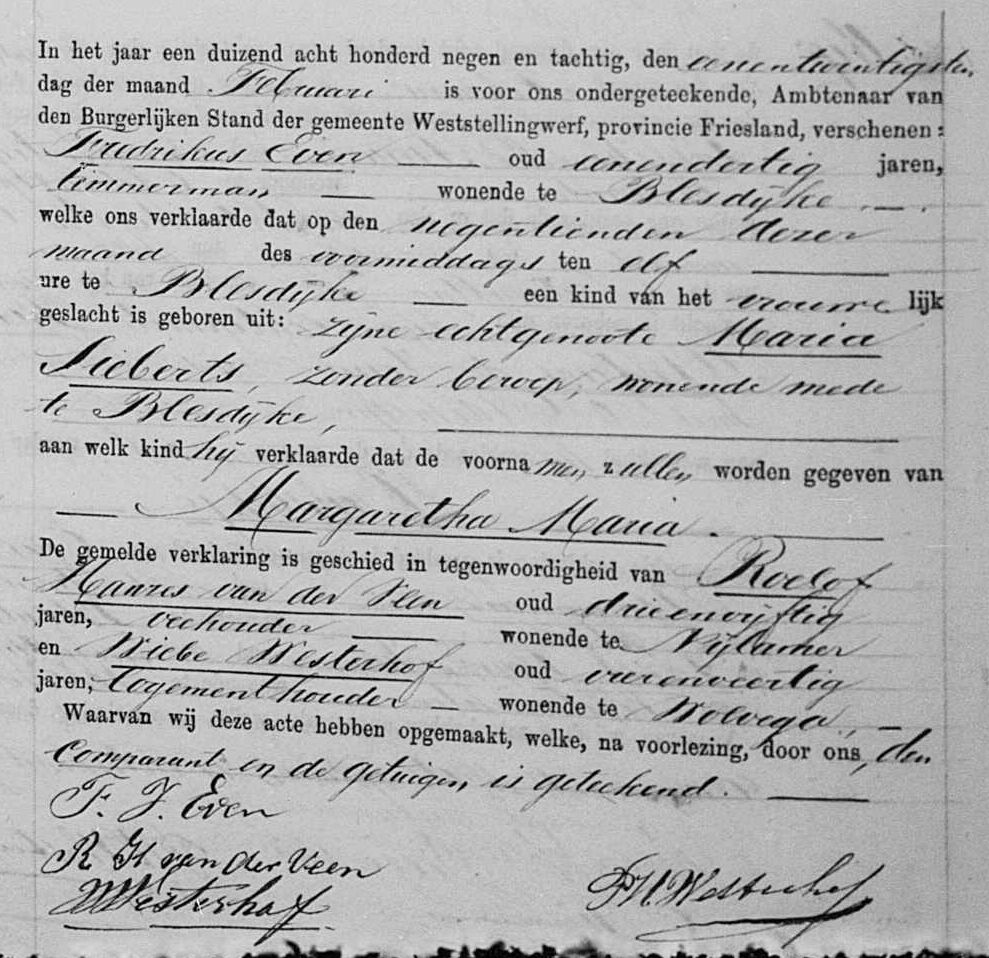 In het jaar een duizend acht honderd negen en tachtig, den eenentwintigsten
dag der maand Februari is voor ons ondergeteekende, Ambtenaar van
den Burgerlijken Stand der gemeente Weststellingwerf, provincie Friesland, verschenen:
Fredrikus Even oud eenendertig jaren,
timmerman wonende te Blesdijke
welke ons verklaarde dat op den negentienden dezer
maand des voormiddags ten elf
ure te Blesdijke een kind van het vrouwe lijk
geslacht is geboren uit: zijne echtgenoote Maria
Sieberts, zonder beroep, wonende mede
te Blesdijke,
aan welk kind hij verklaarde dat de voorna men zullen worden gegeven van
Margaretha Maria.
De gemelde verklaring is geschied in tegenwoordigheid van Roelof
van der Veen oud drieenvijftig
jaren, veehouder wonende te Nijlamer
en Wiebe Westerhof oud vierenveertig
jaren, logementhouder wonende te Wolvega,
Waarvan wij deze acte hebben opgemaakt, welke, na voorlezing, door ons, den
Comparant en de getuigen, is geteekend.
F. J. Even
R H van der Veen
WWesterhof Westerhof